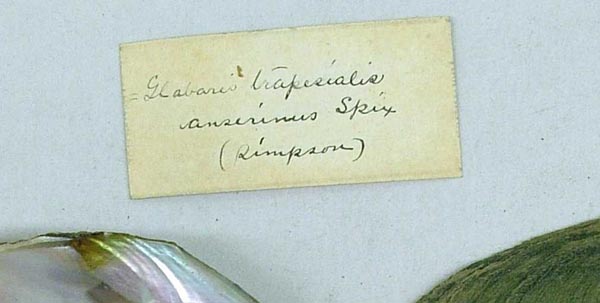 = Glabaris trapesialis
anserinus Spix
(Simpson)